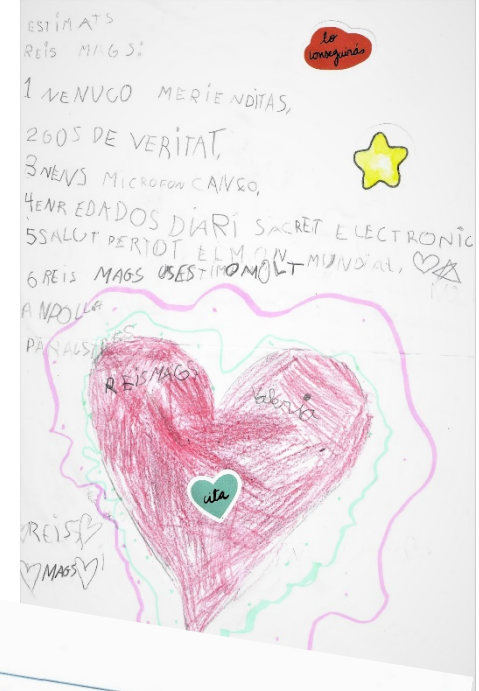 ESTIMATS
REIS MAGS:
lo
conseguirás
1 NENUCO MERIENDITAS,
2 GOS DE VERITAT,
3 NENS MICROFON CANÇO,
4 ENREDADOS DIARI SACRET ELECTRONIC
5 SALUT PERTOT EL MON MUNDIAL,
6 REIS MAGS US ESTIMO MOLT
REIS MAGS
Valeria
cita
REIS
MAGS